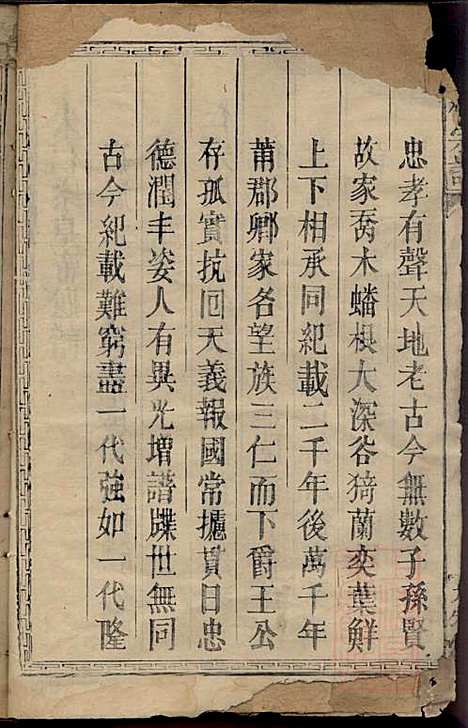 忠孝有聲天地老古今無數子孫賢
故家喬木蟠根大深谷猗蘭奕葉鮮
上下相承同紀載二千年後萬千年
莆郡鄉家名望族三仁而下爵王公
存孤實抗回天義報國常攄貫日忠
德潤丰姿人有異光增譜牒世無同
古今紀載難窮盡一代強如一代隆